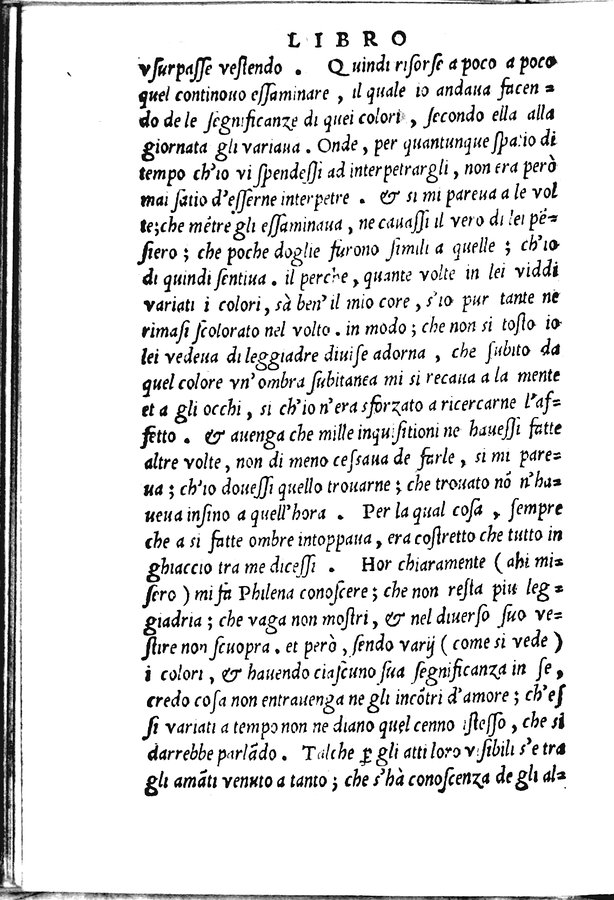 LIBRO
vsurpasse vestendo . Quindi risorse a poco a poco
quel continouo essaminare , il quale io andaua facen=
do de le segnificanze di quei colori , secondo ella alla
giornata gli variaua . Onde , per quantunque spatio di
tempo ch'io vi spendessi ad interpetrargli , non era però
mai satio d'esserne interpetre . & si mi pareua a le vol
te;che mẽtre gli essaminaua , ne cauassi il vero di lei pẽ=
siero ; che poche doglie furono simili a quelle ; ch'io
di quindi sentiua . il perche , quante volte in lei viddi
variati i colori , sà ben' il mio core , s'io pur tante ne
rimasi scolorato nel volto . in modo ; che non si tosto io
lei vedeua di leggiadre diuise adorna , che subito da
quel colore vn' ombra subitanea mi si recaua a la mente
et a gli occhi , si ch'io n'era sforzato a ricercarne l'af=
fetto . & auenga che mille inquisitioni ne hauessi fatte
altre volte , non di meno cessaua de farle , si mi pare=
ua ; ch'io douessi quello trouarne ; che trouato nõ n'ha=
ueua insino a quell'hora . Per la qual cosa , sempre
che a si fatte ombre intoppaua , era costretto che tutto in
ghiaccio tra me dicessi . Hor chiaramente ( ahi mi=
sero ) mi fa Philena conoscere ; che non resta piu leg=
giadria ; che vaga non mostri , & nel diuerso suo ve=
stire non scuopra . et però , sendo varij ( come si vede )
i colori , & hauendo ciascuno sua segnificanza in se ,
credo cosa non entrauenga ne gli incõtri d'amore ; ch'es
si variati a tempo non ne diano quel cenno istesso , che si
darrebbe parlãdo . Talche ꝑ gli atti loro visibili s'e tra
gli amãti venuto a tanto ; che s'hà conoscenza de gli al=